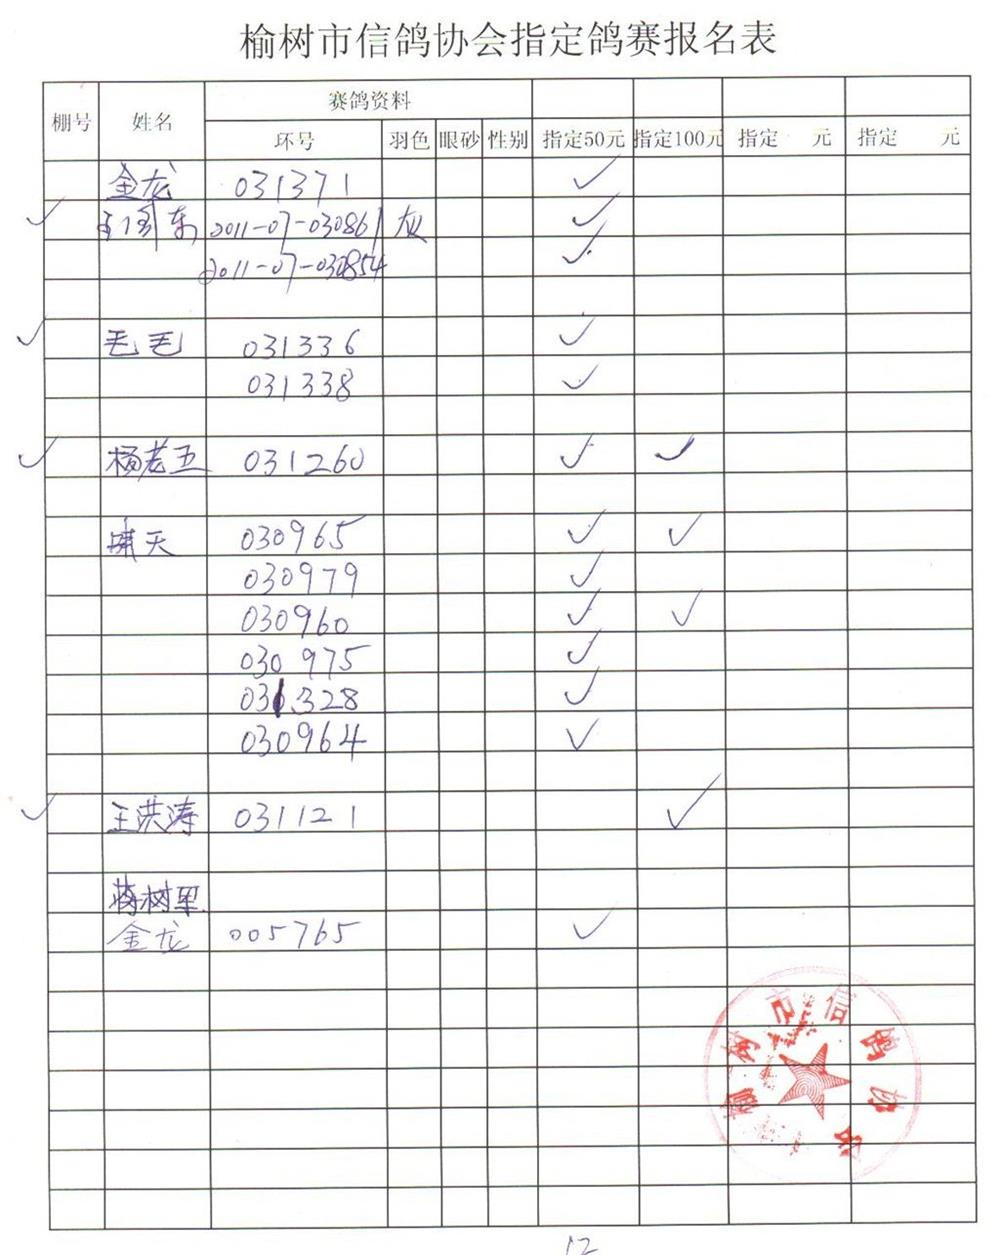 榆树市信鸽协会指定鸽赛报名表
棚号 姓名 赛鸽资料
环号 羽色 眼砂 性别 指定50元 指定100元 指定 元 指定 元
金龙 031371 ✓
✓ 东 2011-07-030861 灰 ✓
2011-07-030854 ✓
✓ 毛毛 031336 ✓
031338 ✓
✓ 杨老五 031260 ✓ ✓
啸天 030965 ✓ ✓
030979 ✓
030960 ✓ ✓
030975 ✓
031328 ✓
030964 ✓
✓ 王洪涛 031121 ✓
树
金龙 005765 ✓
榆树市信鸽协会
12